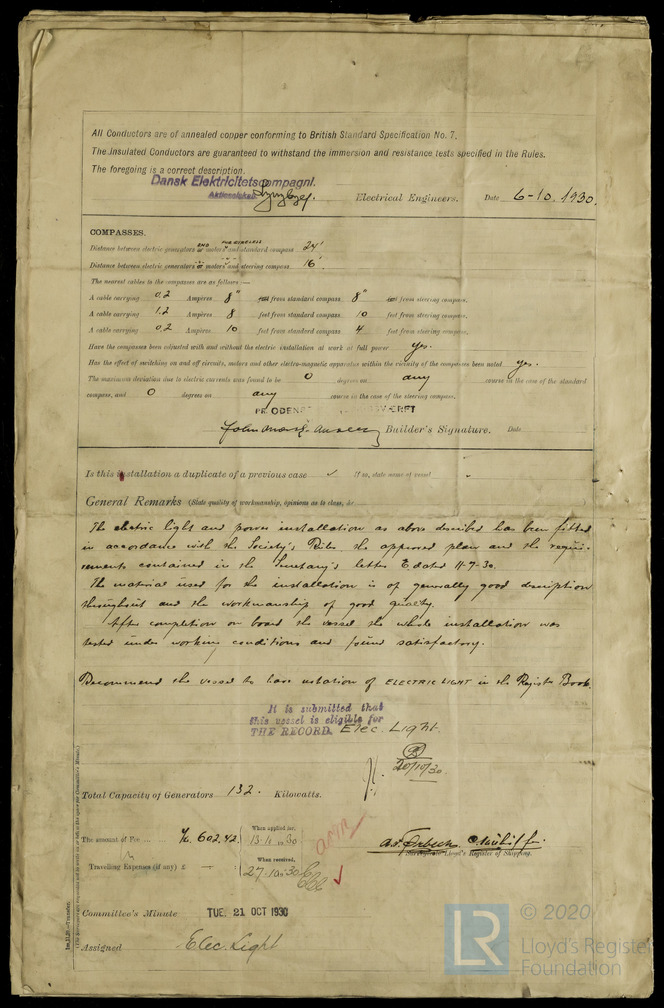 All Conductors are of annealed copper conforming to British Standard Specification No. 7.
The Insulated Conductors are guaranteed to withstand the immersion and resistance tests specified in the Rules.
The foregoing is a correct description.
Dansk Elektricitetscompagni.
Aktieselskab.
Electrical Engineers. Date 6-10. 1930.
COMPASSES.
Distance between electric generators or motors and standard compass 24'
AND FOR WIRELESS
Distance between electric generators or motors and steering compass 16'
The nearest cables to the compasses are as follows:—
A cable carrying 0.2 Ampères 8" feet from standard compass 8" feet from steering compass.
A cable carrying 1.2 Ampères 8 feet from standard compass 10 feet from steering compass.
A cable carrying 0.2 Ampères 10 feet from standard compass 4 feet from steering compass.
Have the compasses been adjusted with and without the electric installation at work at full power yes.
Has the effect of switching on and off circuits, motors and other electro-magnetic apparatus within the vicinity of the compasses been noted yes.
The maximum deviation due to electric currents was found to be 0 degrees on any course in the case of the standard
compass, and 0 degrees on any course in the case of the steering compass.
Builder's Signature. Date
Is this installation a duplicate of a previous case ✓ If so, state name of vessel
General Remarks (State quality of workmanship, opinions as to class, &c.
The electric light and power installation as above described has been fitted
in accordance with the Society's Rules, the approved plan and the require-
ments contained in the Secretary's letter E dated 11-7-30.
The material used for the installation is of generally good description
throughout and the workmanship of good quality.
After completion on board the vessel the whole installation was
tested under working conditions and found satisfactory.
Recommend the vessel to have notation of ELECTRIC LIGHT in the Register Book.
It is submitted that
this vessel is eligible for
THE RECORD. Elec. Light.
20/10/30.
Total Capacity of Generators 132. Kilowatts.
The amount of Fee ... Kr. 602.42. When applied for,
Travelling Expenses (if any) £ — When received,
27.10.30
Surveyor to Lloyd's Register of Shipping.
Committee's Minute TUE. 21 OCT 1930
Assigned Elec. Light
© 2020
LR
Lloyd's Register
Foundation